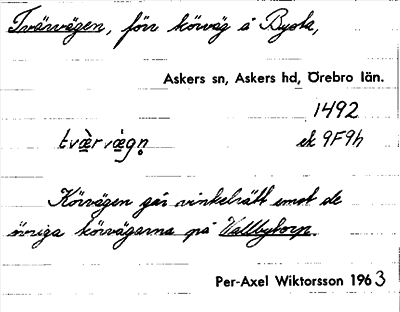 Tvärvägen, förr körväg å Bysta,
Askers sn, Askers hd, Örebro län.
1492
tvæ̀r vægn̥ ek 9F9h
Körvägen går vinkelrätt emot de
övriga körvägarna på Vallbytorp.
Per-Axel Wiktorsson 1963